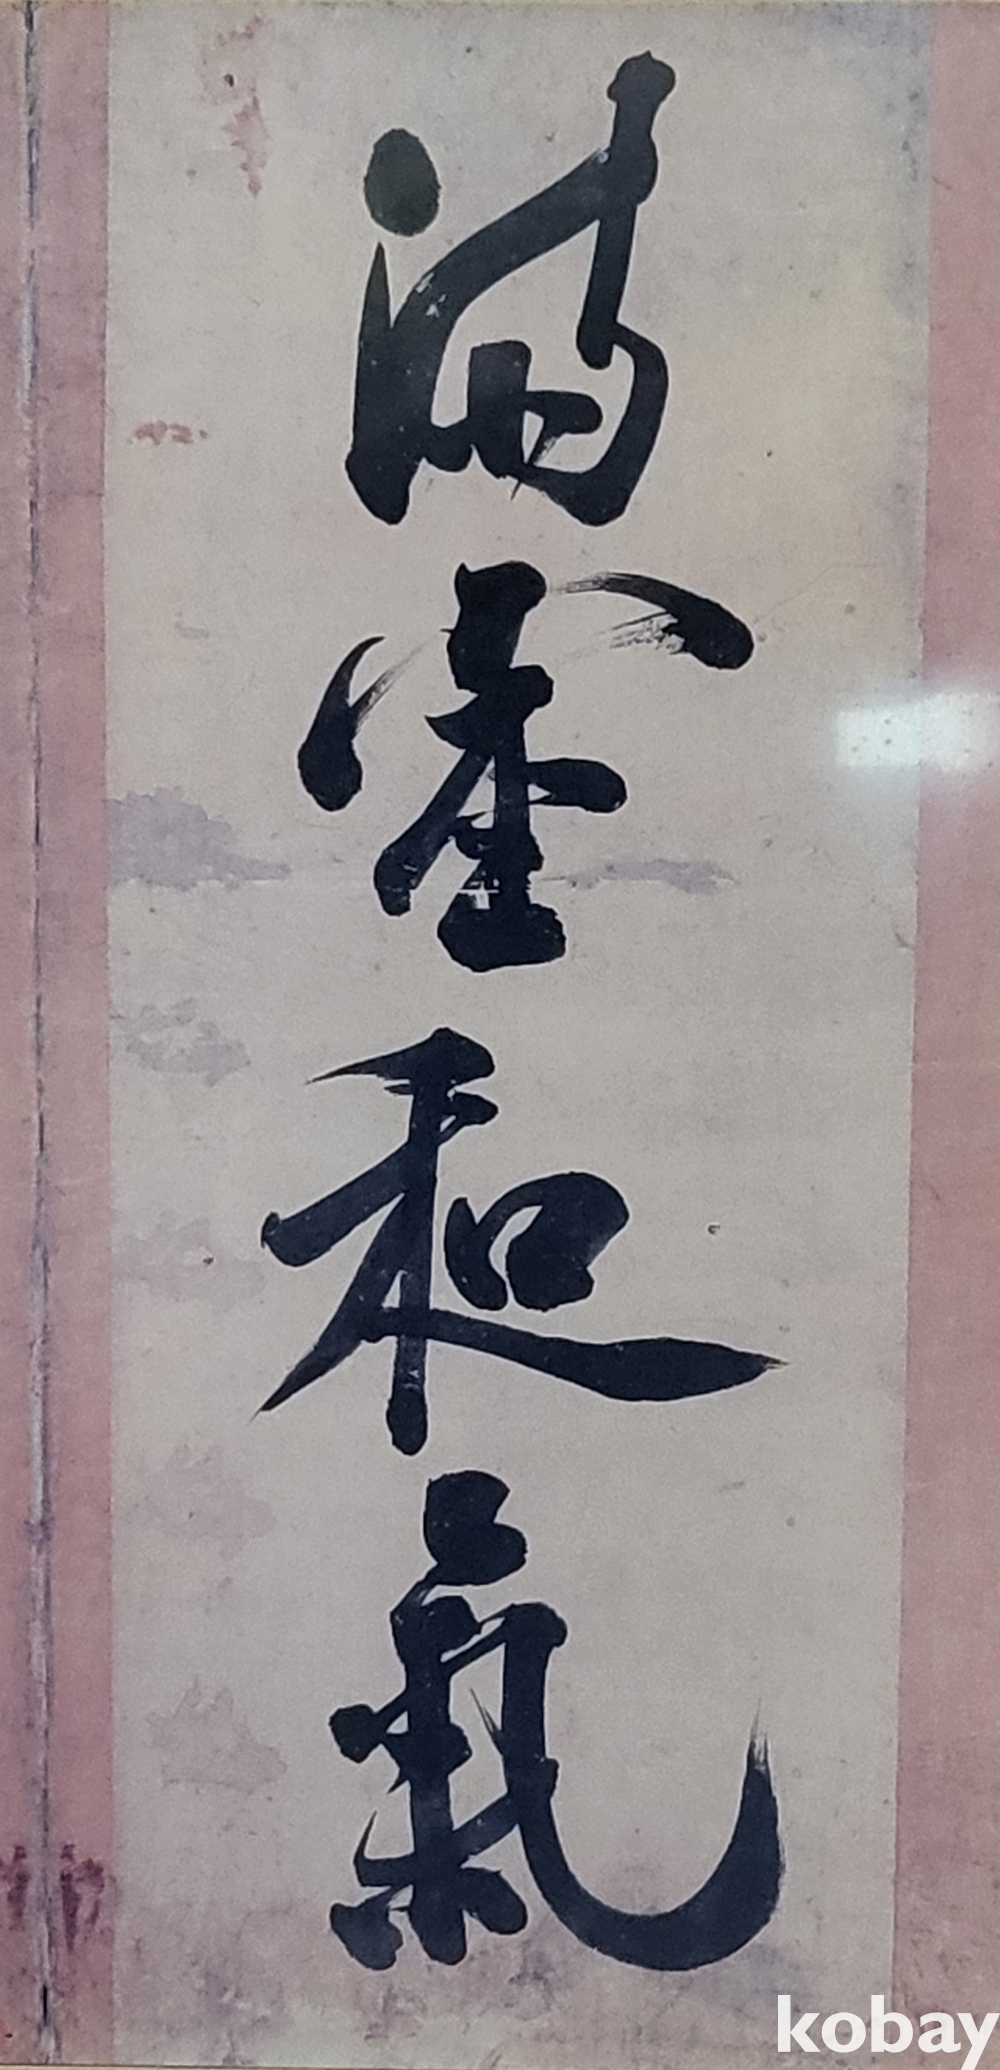 滿室和氣
kobay